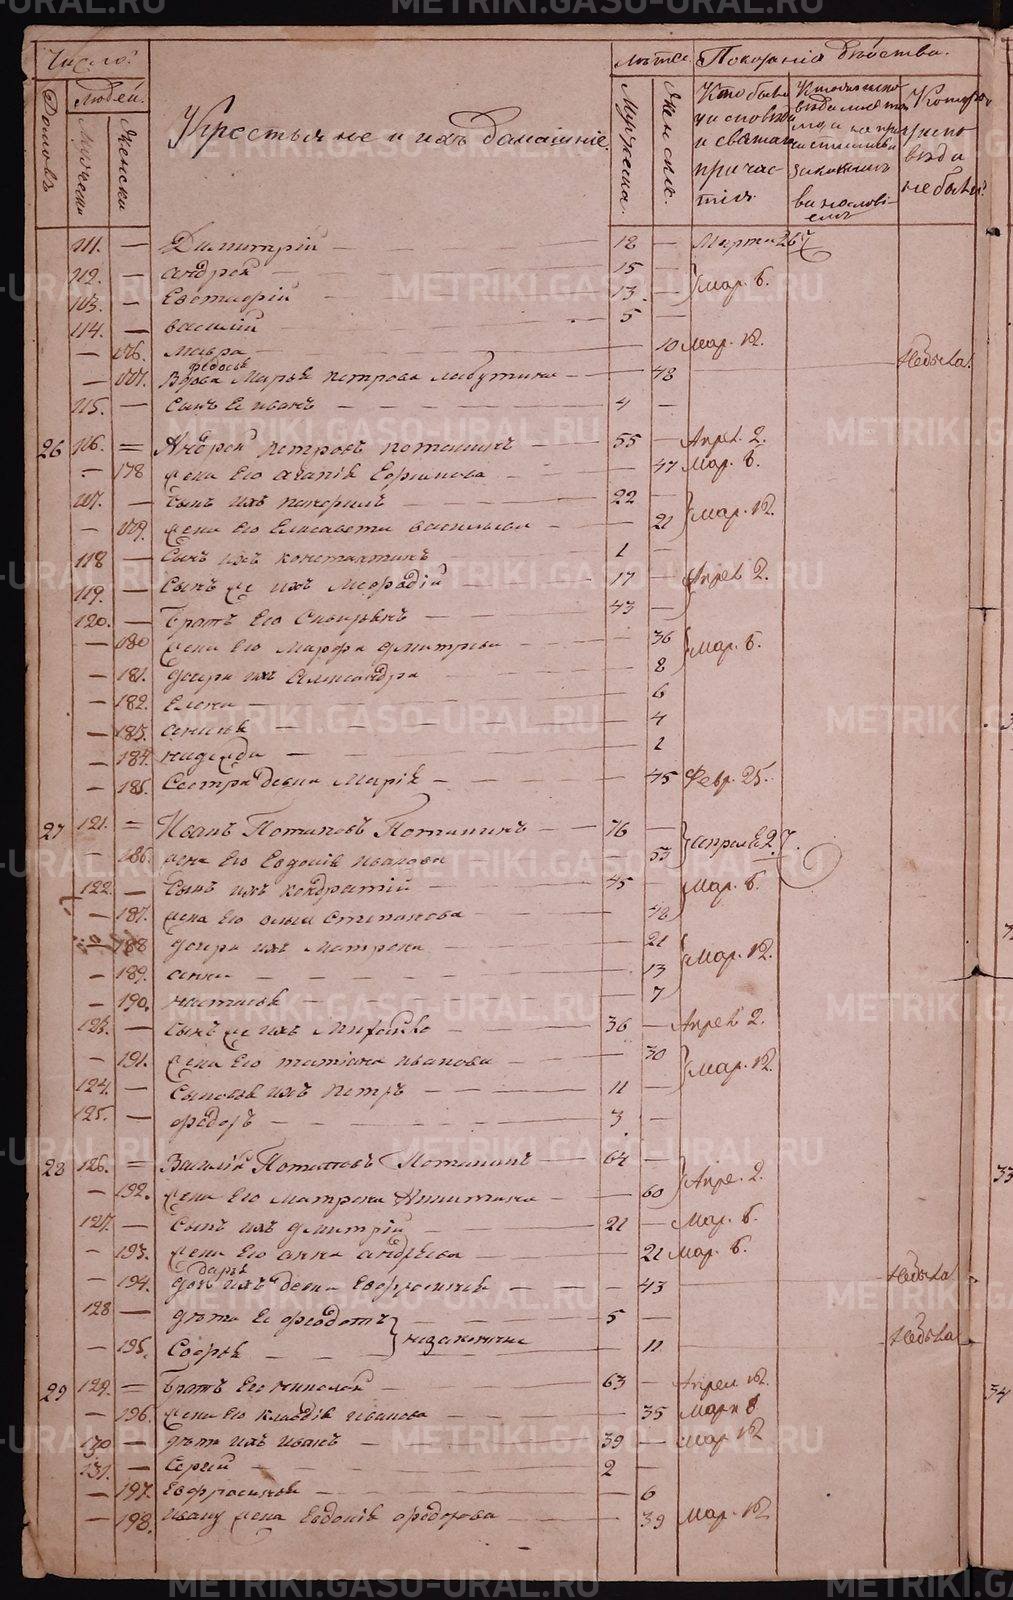 Число.
Людей.
Домовъ
Мужеска
Женска
Крестьяне и ихъ домашніе.
Лѣта.
Мужеска.
Женска.
Показанія дѣйства.
Кто были
у исповѣди
и святаго
причас-
тія.
Которые
не были?
111. — Димитрій — 18 — Марта 26
112. — Андрей — 15 Мар. 6.
113. — Евстафій — 13
114. — Василій — 5 —
— 176. Мавра — 10 Мар. 12.
— 177. Вдова Марья Петрова — 48 Не была.
115. — Сынъ Ея Иванъ — 4 —
26 116. = Андрей Петровъ Потапинъ — 55 — Апрел. 2.
— 178 жена Его Агапія Ефимова — 47 Мар. 6.
117. — Сынъ ихъ — 22 — Мар. 12.
— 179. жена Его Елисавета Васильева — 21
118 — Сынъ ихъ Константинъ — 1 —
119. — Сынъ же ихъ Меѳодій — 17 — Апрел 2.
120. — Братъ Его — 43 —
— 180 жена Его Марфа Дмитріева — 36 Мар. 6.
— 181. Дочери ихъ Александра — 8
— 182. Елена — 6
— 183. — 4
— 184. Надежда — 1
— 185. Сестра девка Марія — 45 Февр. 25.
27 121. = Иванъ Потаповъ Потапинъ — 76 — Апреля 2.
— 186. жена Его Евдокія Иванова — 53
122. — Сынъ ихъ Кондратій — 45 — Мар. 6.
— 187. жена Его Степанова — 42
— 188 Дочери ихъ Матрона — 21 Мар. 12.
— 189. Анна — 13
— 190. Настасья — 7
123. — Сынъ же ихъ Михайло — 36 — Апрел 2.
— 191. жена Его Татіана Иванова — 30 Мар. 12.
124. — Сыновья ихъ Петръ — 11 —
125. — Федоръ — 3 —
28 126. = Василій Потаповъ Потапинъ — 64 — Апре. 2.
— 192. жена Его Матрона Никитина — 60
127. — Сынъ ихъ Дмитрій — 21 — Мар. 6.
— 193. жена Его Анна Андреева — 21 Мар. 6.
— 194. Дочь ихъ девка Евфросинья — 43 Не была
128 — дѣти Ея Феодотъ — 5 —
незаконные
— 195. Софья — 11 Не была
29 129. = Братъ Его Николай — 63 — Апрел 12.
— 196. жена Его Клавдія Иванова — 35 Мар 6
130 — дѣти ихъ Иванъ — 39 — Мар. 12
131. — Сергій — 2 —
— 197. Евфросинья — 6
— 198. Ивану жена Евдокія Федорова — 39 Мар. 12
METRIKI.GASO-URAL.RU